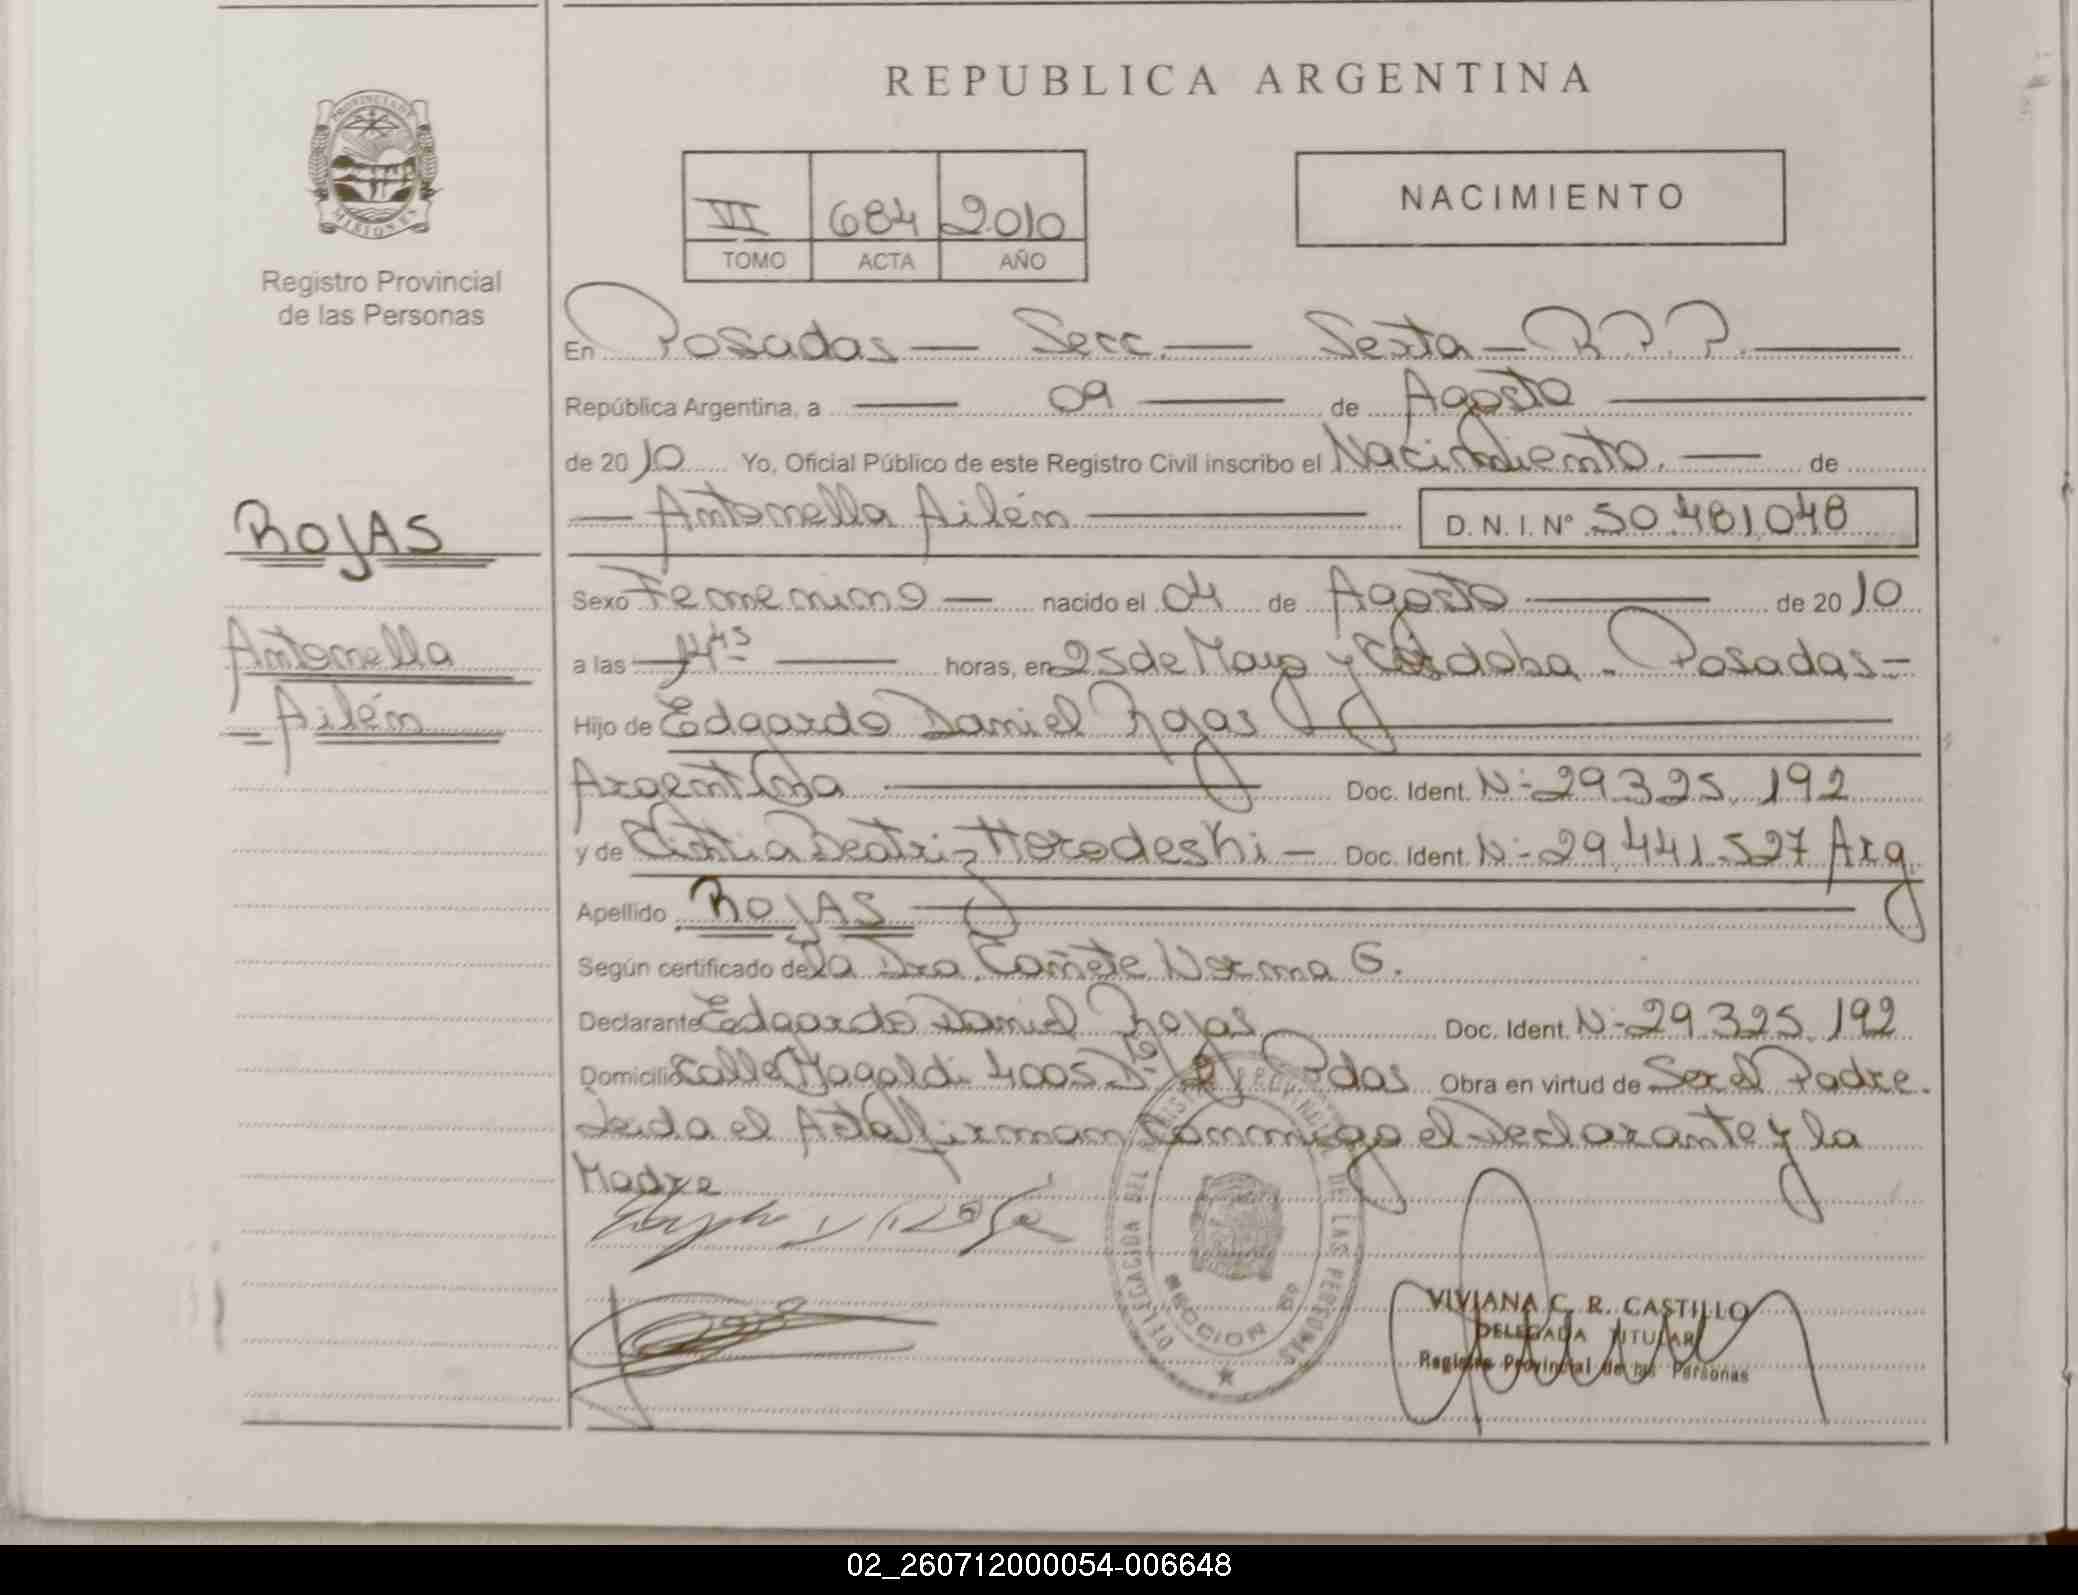 REPUBLICA ARGENTINA
PROVINCIA DE MISIONES
Registro Provincial
de las Personas
684 2010
TOMO ACTA AÑO
NACIMIENTO
En Posadas — Secc. — Sexta — R.P.P. —
República Argentina, a — 09 — de Agosto —
de 2010 Yo, Oficial Público de este Registro Civil inscribo el Nacimiento. — de
— Antonella Ailén — D. N. I. Nº 50.481.048
ROJAS
Antonella
Ailén
Sexo Femenino — nacido el 04 de Agosto — de 2010
a las — — horas, en 25 de Mayo y Córdoba - Posadas -
Hijo de Edgardo Daniel Rojas —
Argentina — Doc. Ident. N:- 29.325.192
y de Cintia Beatriz Horodeski — Doc. Ident. N:- 29.441.527 Arg
Apellido ROJAS —
Según certificado de la Dra. Cañete Norma G.
Declarante Edgardo Daniel Rojas Doc. Ident. N:- 29.325.192
Domicilio Calle Magaldi 4005 Pdas Obra en virtud de Ser el Padre.
Leida el Acta firman conmigo el Declarante y la
Madre
DELEGACION DEL REGISTRO PROVINCIAL DE LAS PERSONAS
SECCION
VIVIANA C. R. CASTILLO
DELEGADA TITULAR
Registro Provincial de las Personas
02_260712000054-006648